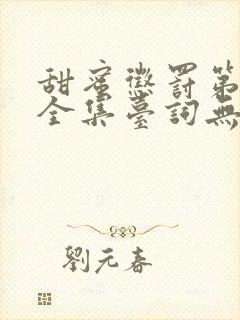 甜蜜懲罰第
全集臺詞無
劉元春